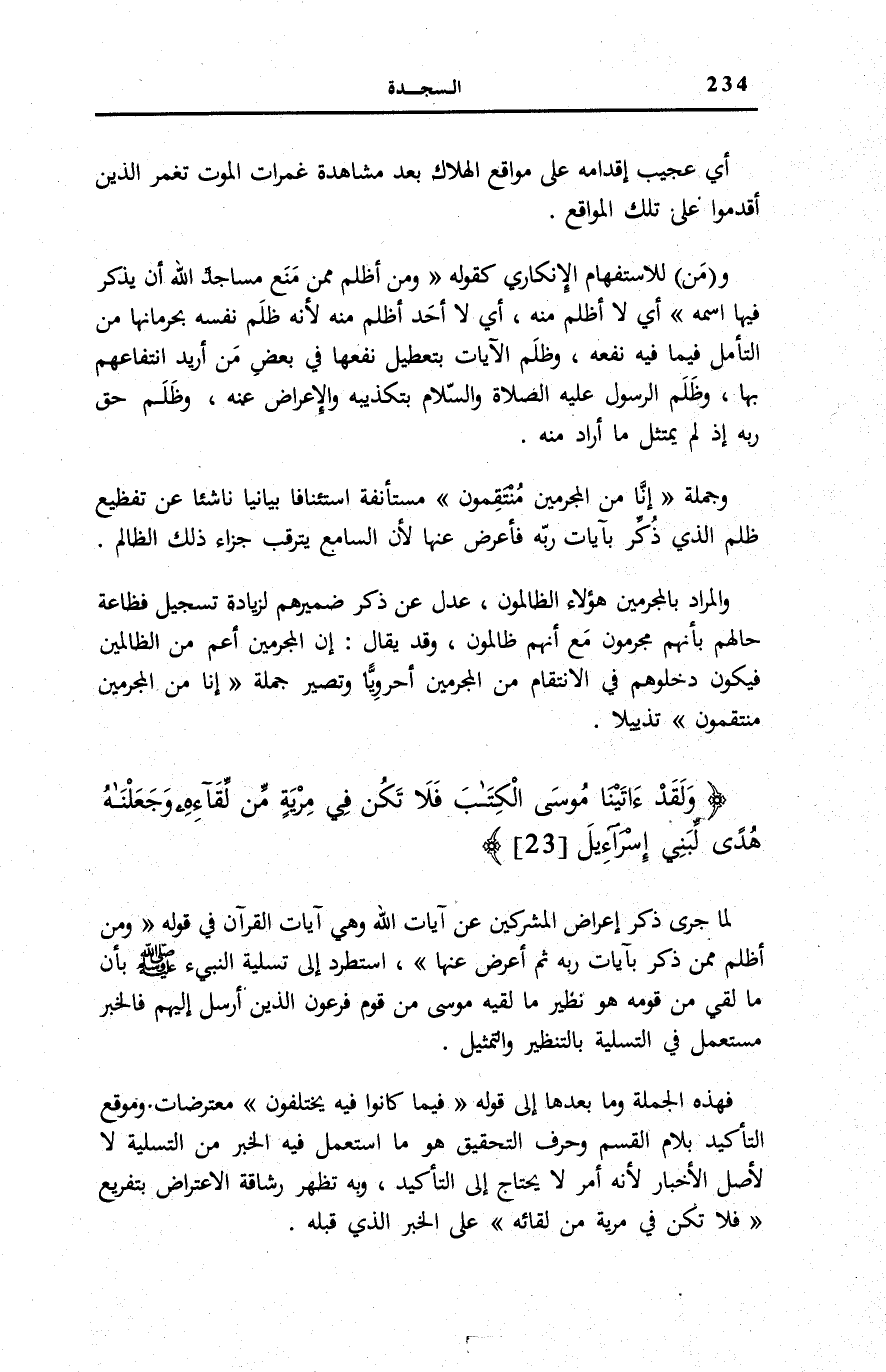 234
السجـــدة
أي عجيب إقدامه على مواقع الهلاك بعد مشاهدة غمرات الموت تغمر الذين
أقدموا على تلك المواقع .
و(مَن) للاستفهام الإنكاري كقوله « ومن أظلم ممن مَنَع مساجدَ الله أن يذكر
فيها اسمه » أي لا أظلم منه ، أي لا أحَد أظلم منه لأنه ظلَم نفسه بحرمانها من
التأمل فيما فيه نفعه ، وظلَم الآيات بتعطيل نفعها في بعضِ مَن أريد انتفاعهم
بها ، وظَلَم الرسول عليه الصلاة والسّلام بتكذيبه والإعراض عنه ، وظَلَـم حق
ربه إذ لم يمتثل ما أراد منه .
وجملة « إنَّا من المجرمين مُنْتَقِمون » مستأنفة استئنافا بيانيا ناشئا عن تفظيع
ظلم الذي ذُكِّر بآيات ربّه فأعرض عنها لأن السامع يترقب جزاء ذلك الظالم .
والمراد بالمجرمين هؤلاء الظالمون ، عدل عن ذكر ضميرهم لزيادة تسجيل فظاعة
حالهم بأنهم مجرمون مَع أنهم ظالمون ، وقد يقال : إن المجرمين أعم من الظالمين
فيكون دخلوهم في الانتقام من المجرمين أحرويًّا وتصير جملة « إنا من المجرمين
منتقمون » تذييلا .
﴿ وَلَقَدْ ءَاتَيْنَا مُوسَى الْكِتَـٰبَ فَلَا تَكُن فِي مِرْيَةٍ مِّن لِّقَآءِهِۦ وَجَعَلْنَـٰهُ
هُدًى لِّبَنِي إِسْرَآءِيلَ [23] ﴾
لما جرى ذكر إعراض المشركين عن آيات الله وهي آيات القرآن في قوله « ومن
أظلم ممن ذكر بآيات ربه ثم أعرض عنها » ، استطرد إلى تسلية النبيء ﷺ بأن
ما لقي من قومه هو نظير ما لقيه موسى من قوم فرعون الذين أرسل إليهم فالخبر
مستعمل في التسلية بالتنظير والتمثيل .
فهذه الجملة وما بعدها إلى قوله « فيما كانوا فيه يختلفون » معترضات. وموقع
التأكيد بلام القسم وحرف التحقيق هو ما استعمل فيه الخبر من التسلية لا
لأصل الأخبار لأنه أمر لا يحتاج إلى التأكيد ، وبه تظهر رشاقة الاعتراض بتفريع
« فلا تكن في مرية من لقائه » على الخبر الذي قبله .